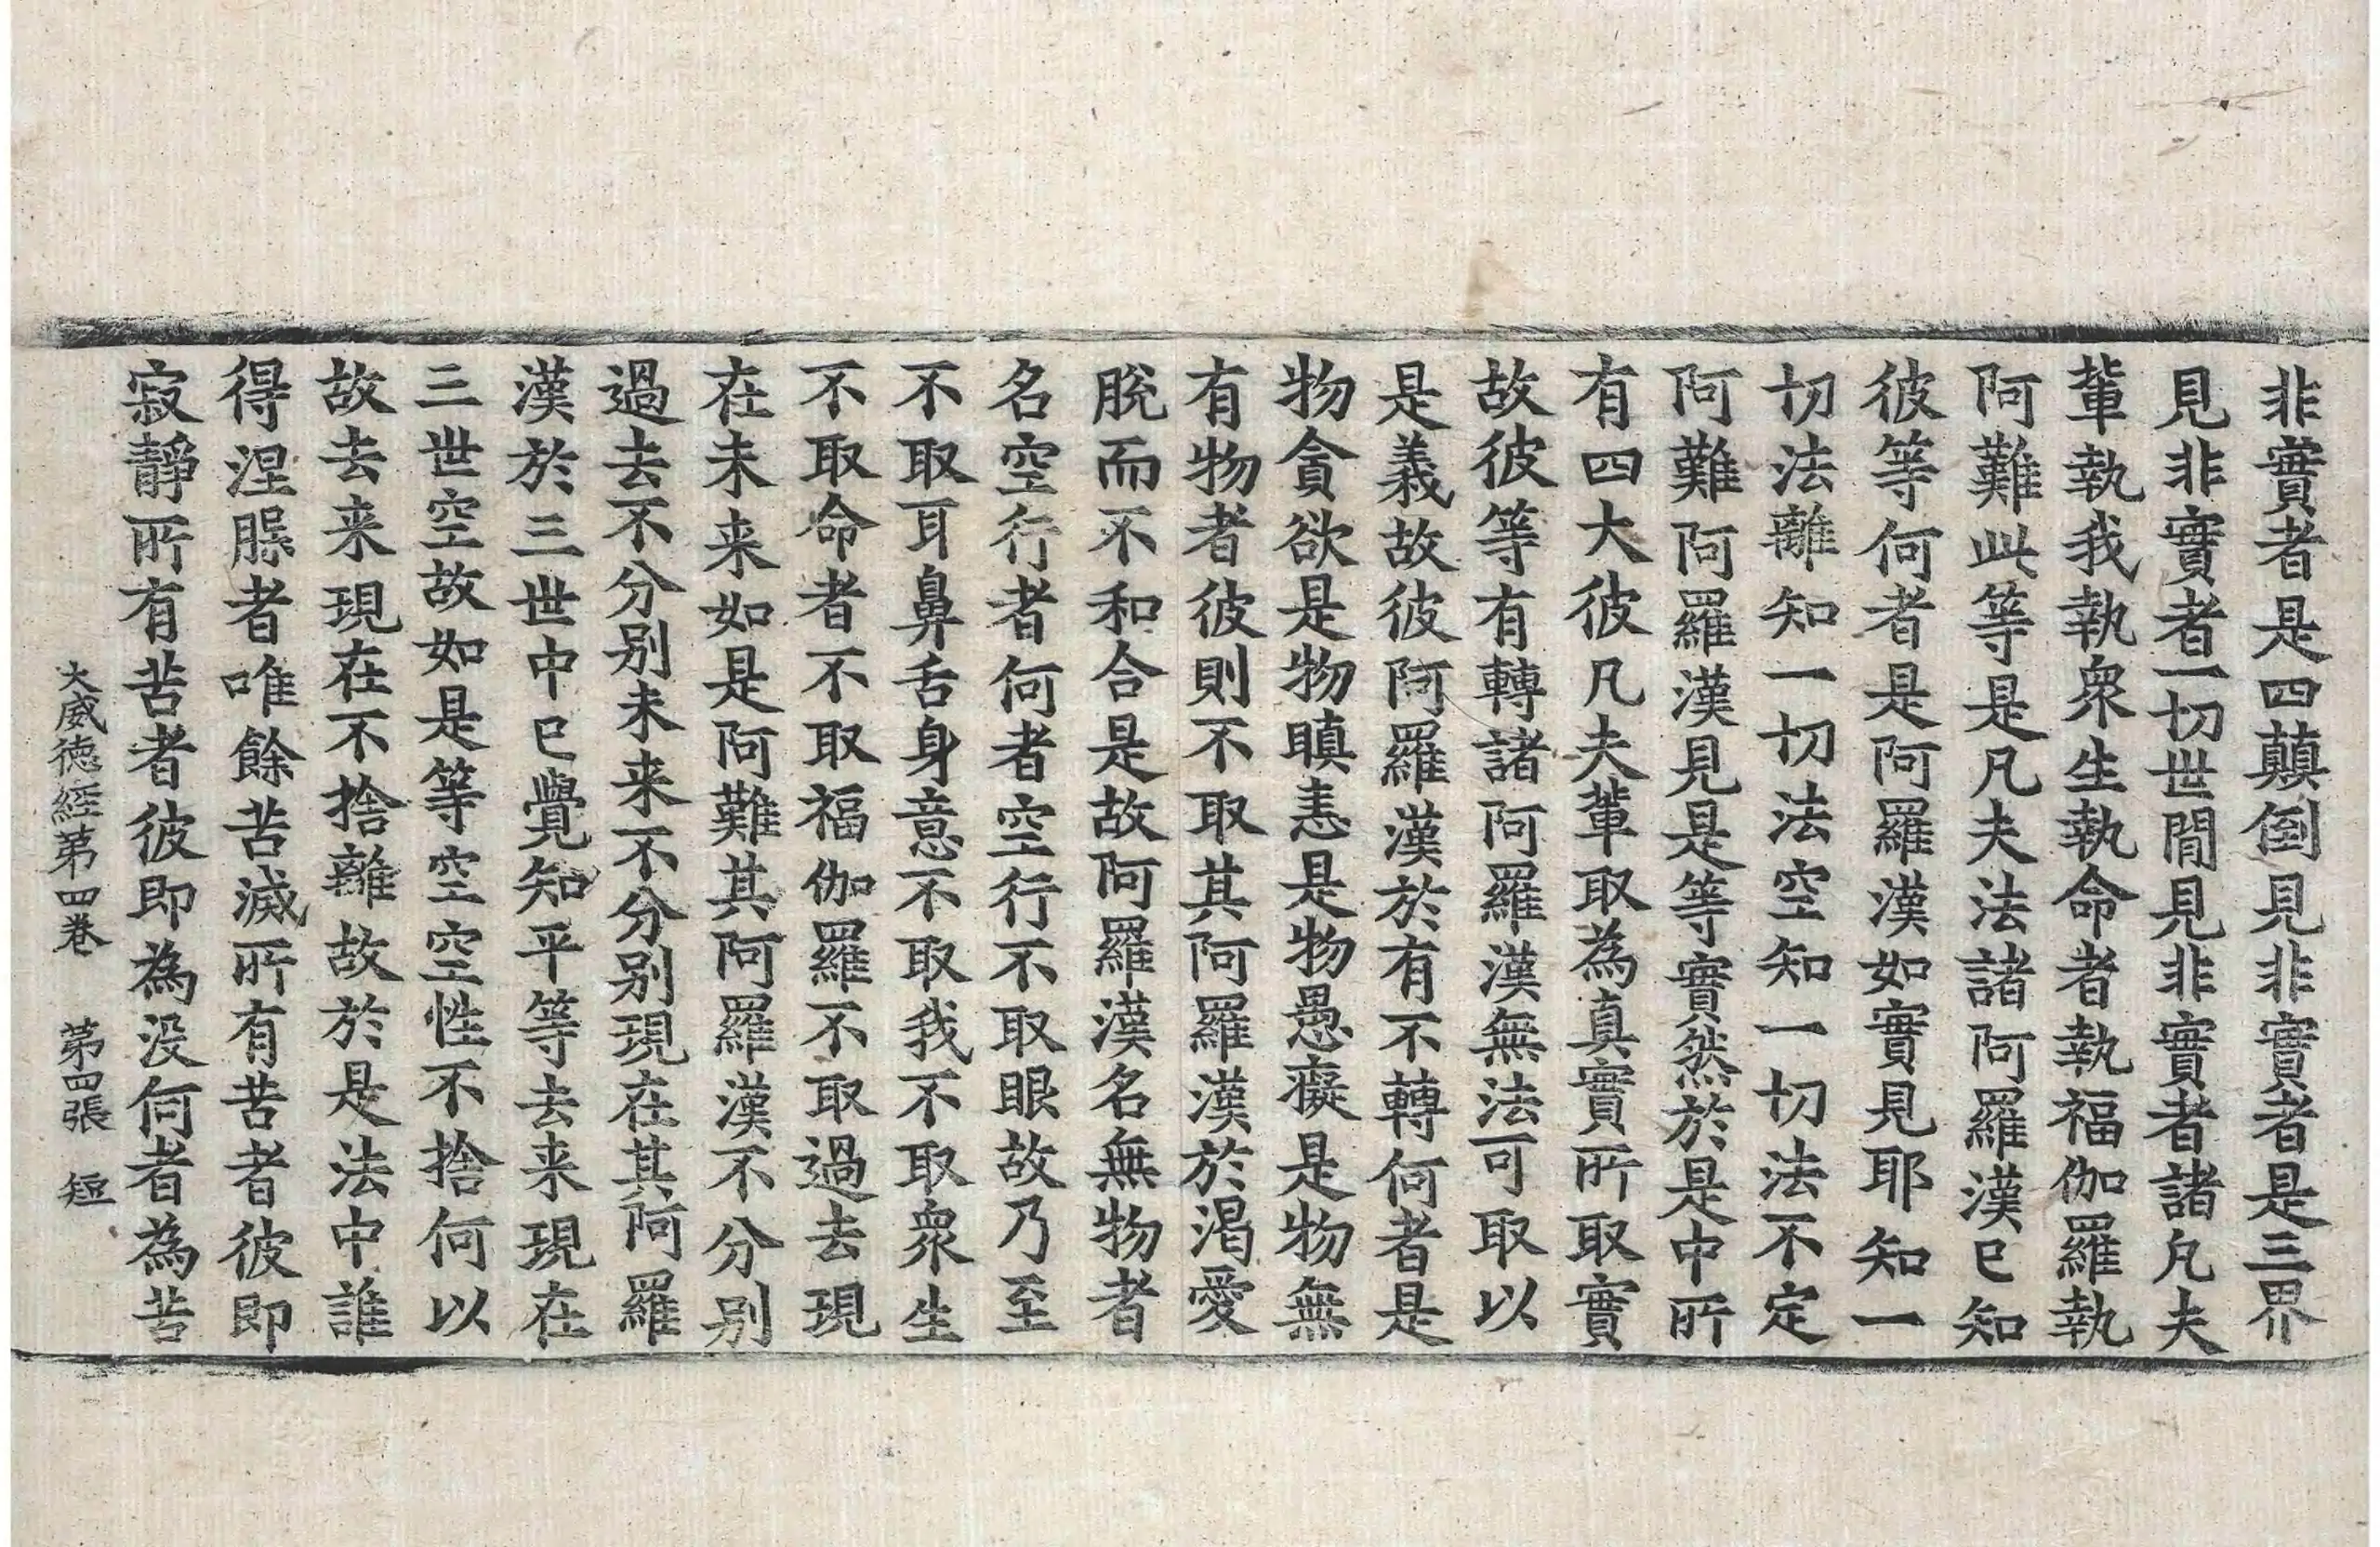 非實者是四顛倒見非實者是三界
見非實者一切世間見非實者諸凡夫
輩執我執衆生執命者執福伽羅執
阿難此等是凡夫法諸阿羅漢已知
彼等何者是阿羅漢如實見耶知一
切法離知一切法空知一切法不定
阿難阿羅漢見是等實然於是中所
有四大彼凡夫輩取為真實所取實
故彼等有轉諸阿羅漢無法可取以
是義故彼阿羅漢於有不轉何者是
物貪欲是物瞋恚是物愚癡是物無
有物者彼則不取其阿羅漢於渴愛
脫而不和合是故阿羅漢名無物者
名空行者何者空行不取眼故乃至
不取耳鼻舌身意不取我不取衆生
不取命者不取福伽羅不取過去現
在未来如是阿難其阿羅漢不分别
過去不分别未来不分别現在其阿羅
漢於三世中已覺知平等去来現在
三世空故如是等空空性不捨何以
故去来現在不捨離故於是法中誰
得涅槃者唯餘苦滅所有苦者彼即
寂靜所有苦者彼即為没何者為苦
大威德經第四卷　第四張　短